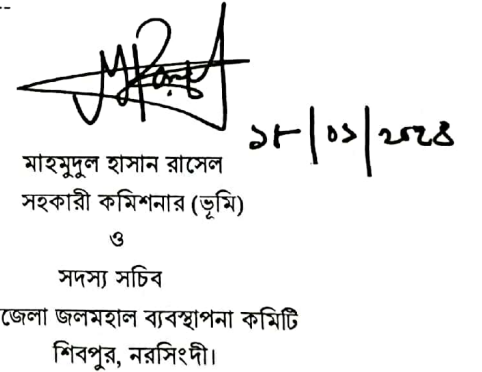 ১৮/০১/২০২৪
মাহমুদুল হাসান রাসেল
সহকারী কমিশনার (ভূমি)
ও
সদস্য সচিব
জেলা জলমহাল ব্যবস্থাপনা কমিটি
শিবপুর, নরসিংদী।